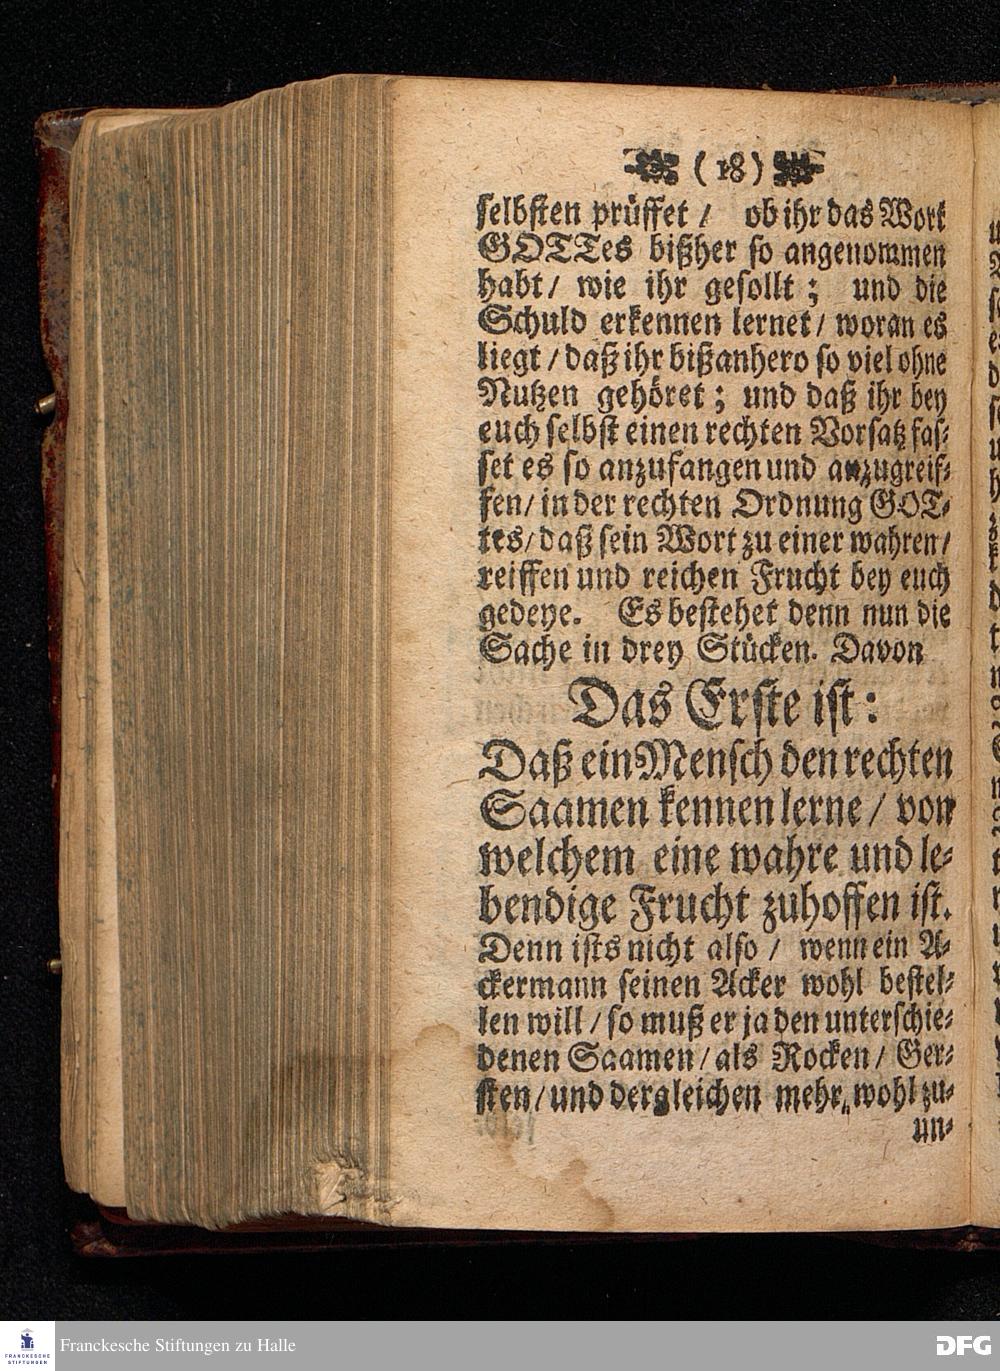 (18)
selbsten prüffet / ob ihr das Wort
GOTTes bißher so angenommen
habt / wie ihr gesollt ; und die
Schuld erkennen lernet / woran es
liegt / daß ihr bißanhero so viel ohne
Nutzen gehöret ; und daß ihr bey
euch selbst einen rechten Vorsatz fas-
set es so anzufangen und anzugreif-
fen / in der rechten Ordnung GOT-
tes / daß sein Wort zu einer wahren /
reiffen und reichen Frucht bey euch
gedeye. Es bestehet denn nun die
Sache in drey Stücken. Davon
Das Erste ist :
Daß ein Mensch den rechten
Saamen kennen lerne / von
welchem eine wahre und le-
bendige Frucht zuhoffen ist.
Denn ists nicht also / wenn ein A-
ckermann seinen Acker wohl bestel-
len will / so muß er ja den unterschie-
denen Saamen / als Rocken / Ger-
sten / und dergleichen mehr, wohl zu-
un-
FRANCKESCHE
STIFTUNGEN
Franckesche Stiftungen zu Halle
DFG